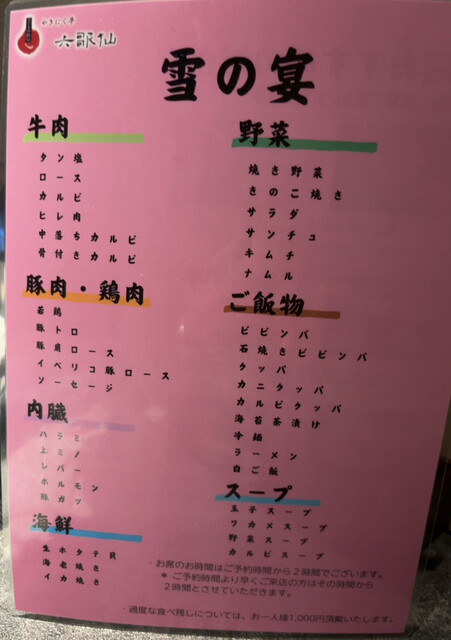 やきにく亭
六歌仙
雪の宴
牛肉
タン塩
ロース
カルビ
ヒレ肉
中落ちカルビ
骨付きカルビ
豚肉・鶏肉
若鶏
豚トロ
豚肩ロース
イベリコ豚ロース
ソーセージ
内臓
ハラミ
上ミノ
レバー
ホルモン
豚ガツ
海鮮
生ホタテ貝
海老焼き
イカ焼き
野菜
焼き野菜
きのこ焼き
サラダ
サンチュ
キムチ
ナムル
ご飯物
ビビンバ
石焼きビビンバ
クッパ
カニクッパ
カルビクッパ
海苔茶漬け
冷麺
ラーメン
白ご飯
スープ
玉子スープ
ワカメスープ
野菜スープ
カルビスープ
・お席のお時間はご予約時間から2時間でございます。
＊ご予約時間より早くご来店の方はその時間から
2時間とさせていただきます。
・過度な食べ残しについては、お一人様1,000円頂戴いたします。